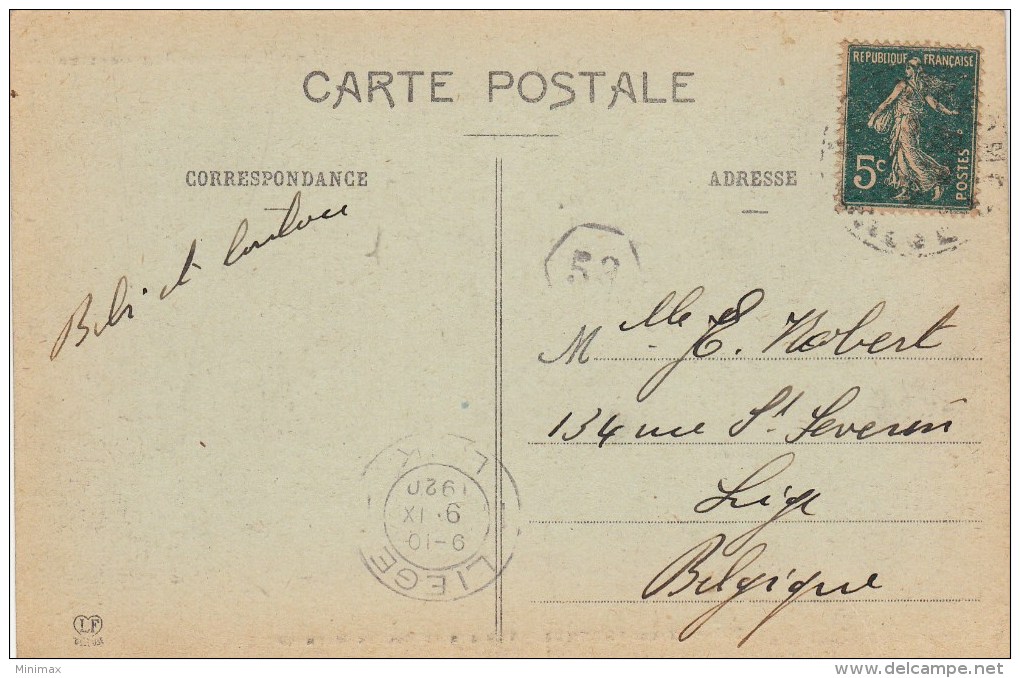 CARTE POSTALE
REPUBLIQUE FRANÇAISE
5c
POSTES
CORRESPONDANCE
ADRESSE
Bebi et Loulou
53
Mlle E. Nobert
134 rue St Severin
Liége
Belgique
LIEGE
9-10
9·IX
1920
LUIK
LF
Minimax
delcampe.net